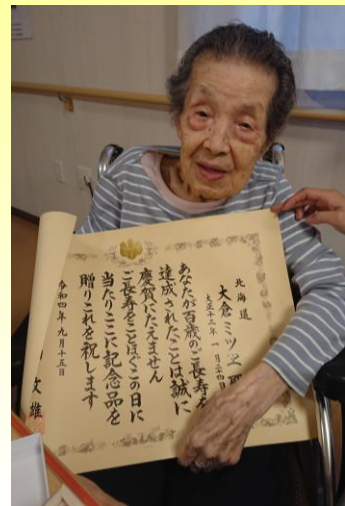 北海道
大倉ミツヱ
大正十二年一月二十四日
あなたが百歳のご長寿を
達成されたことは誠に
慶賀にたえません
ご長寿をことほぐこの日に
当たりここに記念品を
贈りこれを祝します
令和四年九月十五日
文雄